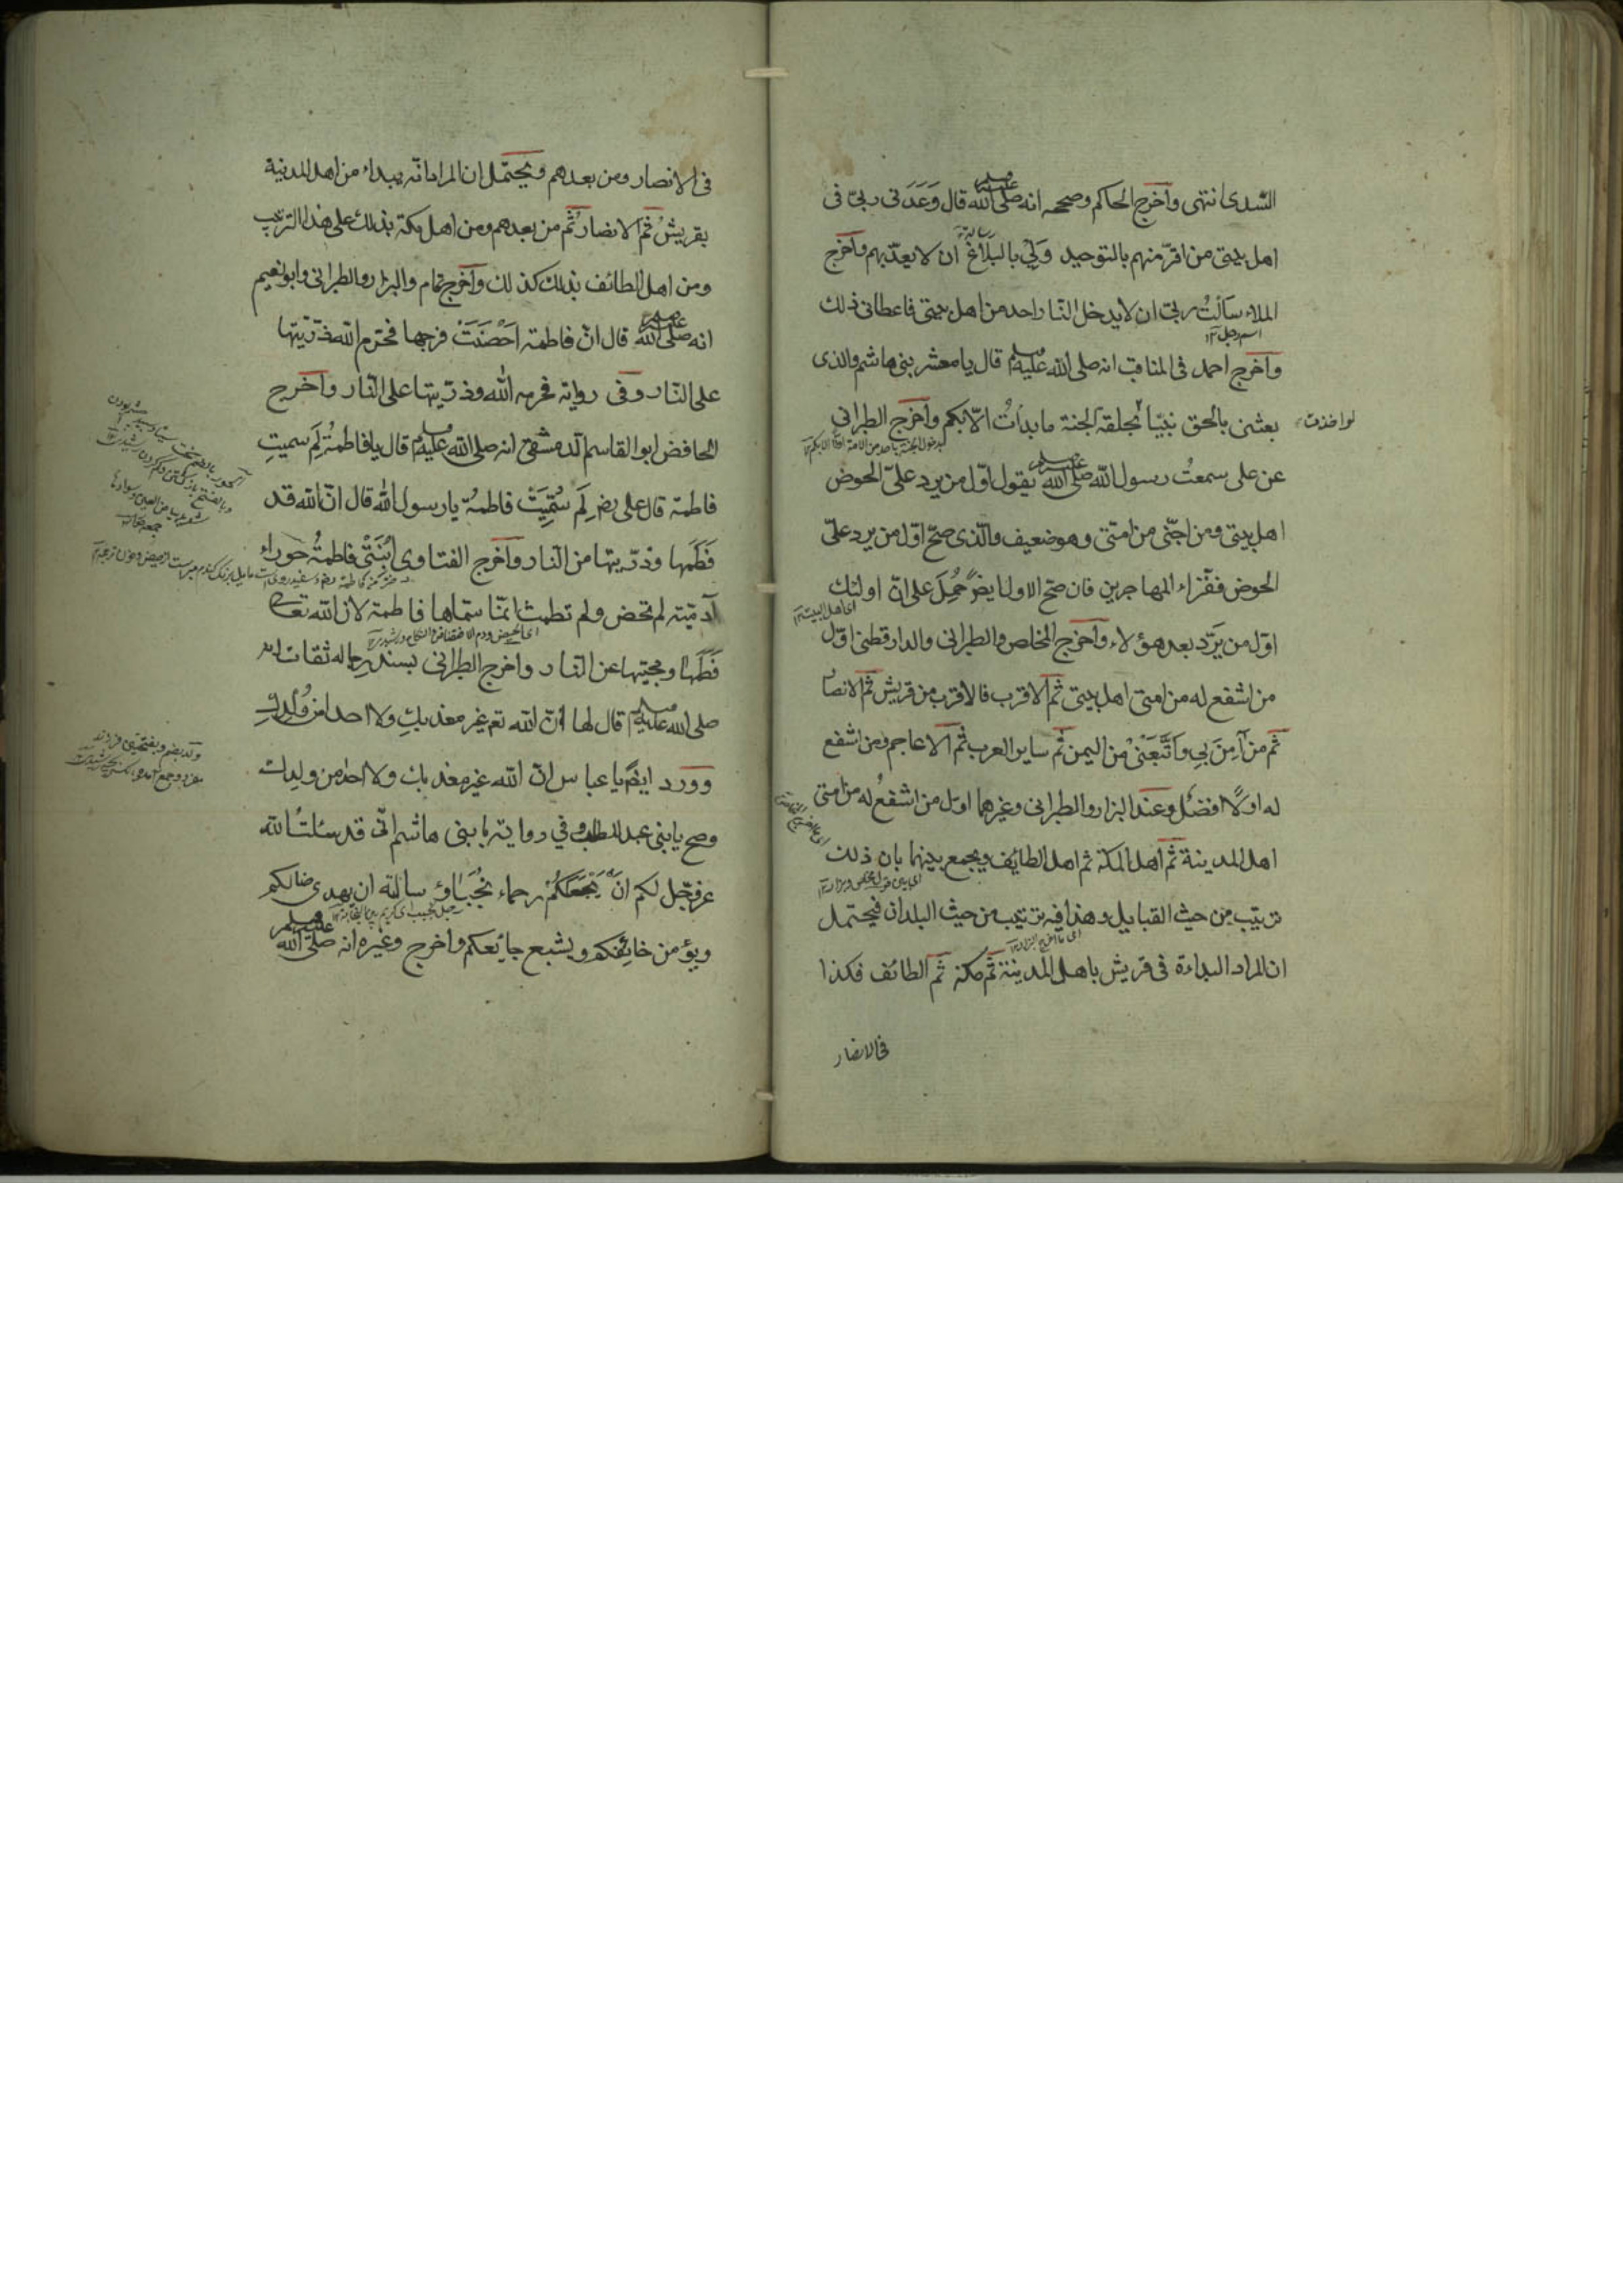 السّدى انتهى وأخرج الحاكم وصححه انه صلى الله عليه وسلم قال وَعَدَنى ربىّ فى
اهل بيتى من اقرّ منهم بالتوحيد ولِىَ بالبَلاَغ ان لا يعذّبهم وأخرج
الملاء سَألتُ ربى ان لا يدخل النّار احد من اهل بيتى فاعطانى ذلك
اسم رجل ١٢
وأخرج احمد فى المناقب انه صلى الله عليه وسلم قال يا معشر بنى هاشم والذى
بعثنى بالحق نبيّا لو اخذت بحلقة الجنة ما بدأتُ الاّ بكم وأخرج الطبرانى
عن على سمعتُ رسول اللّه صلى الله عليه وسلم يقول اوّل من يرد علىّ الحوض
اهل بيتى ومن احبّنى من امتى وهو ضعيف والّذى صحّ اوّل من يرد علىّ
الحوض فقراء المهاجرين فان صح الاول ايضً حُمِلَ على انّ اولئك
اى اهل البيت ١٢
اوّل من يَرِد بعد هؤلاء وأخرج المخلص والطبرانى والدارقطنى اوّل
من اشفع له من امتى اهل بيتى ثمّ الاقرب فالاقرب من قريش ثمّ الانصار
ثمّ من آمن بى واتّبعنى من اليمن ثمّ ساير العرب ثمّ الاعاجم ومن اشفع
له اولًا افضلُ وعند البزار والطبرانى وغيرهما اوّل من اشفعُ له من امتى
اهل المدينة ثمّ اهل المكة ثم اهل الطايف ويجمع بينهما بان ذلك
ترتيب من حيث القبايل وهذا فيه ترتيب من حيث البلدان فيحتمل
ان المراد البداءة فى قريش باهل المدينة ثمّ مكة ثمّ الطائف فكذا
فى الانصار
فى الانصار ومن بعدهم ويحتمل ان المراد انّه يبداء من اهل المدينة
بقريش ثمّ الانصار ثمّ من بعدهم ومن اهل مكة بذلك على هذا الترتيب
ومن اهل الطائف بذلك كذلك وأخرج تمام والبزار والطبرانى وابو نعيم
انه صلى الله عليه وسلم قال انّ فاطمة اَحْصَنَتْ فرجها فحرّم اللّه ذرّيتها
على النّار وفى رواية فحرمه اللّه وذرّيتها على النّار وأخرج
الحافض ابو القاسم الدمشقى انه صلى الله عليه وسلم قال يا فاطمةُ لِمَ سميتِ
فاطمة قال على رضـ لِم سُمّيَتْ فاطمةُ يا رسول اللّه قال انّ اللّه قد
فَطَمها وذرّيتها من النار وأخرج الفتاوى اِبْنَتى فاطمةُ حَوراء
آدميّته لم تحض ولم تطمث انمّا سمّاها فاطمة لان اللّه تعالى
فَطَمها ومحبّيها عن النّار واخرج الطبرانى بسند رجاله ثقات انه
صلى الله عليه وسلم قال لها انّ اللّه تع غير معذبكِ ولا احدا من وُلدكِ
وورد ايضً يا عباس انّ اللّه غير معذبك ولا احد من ولدك
وصح يا بنى عبد المطلب وفي رواية يا بنى هاشم انى قد سئلتُ اللّه
عز وجل لكم ان يَجْعَلَكُمْ رحماء نُجَبَاءَ وسالته ان يهدى ضالكم
ويؤمن خائفكم ويشبع جايعكم واخرج وغيره انه صلى الله عليه وسلم